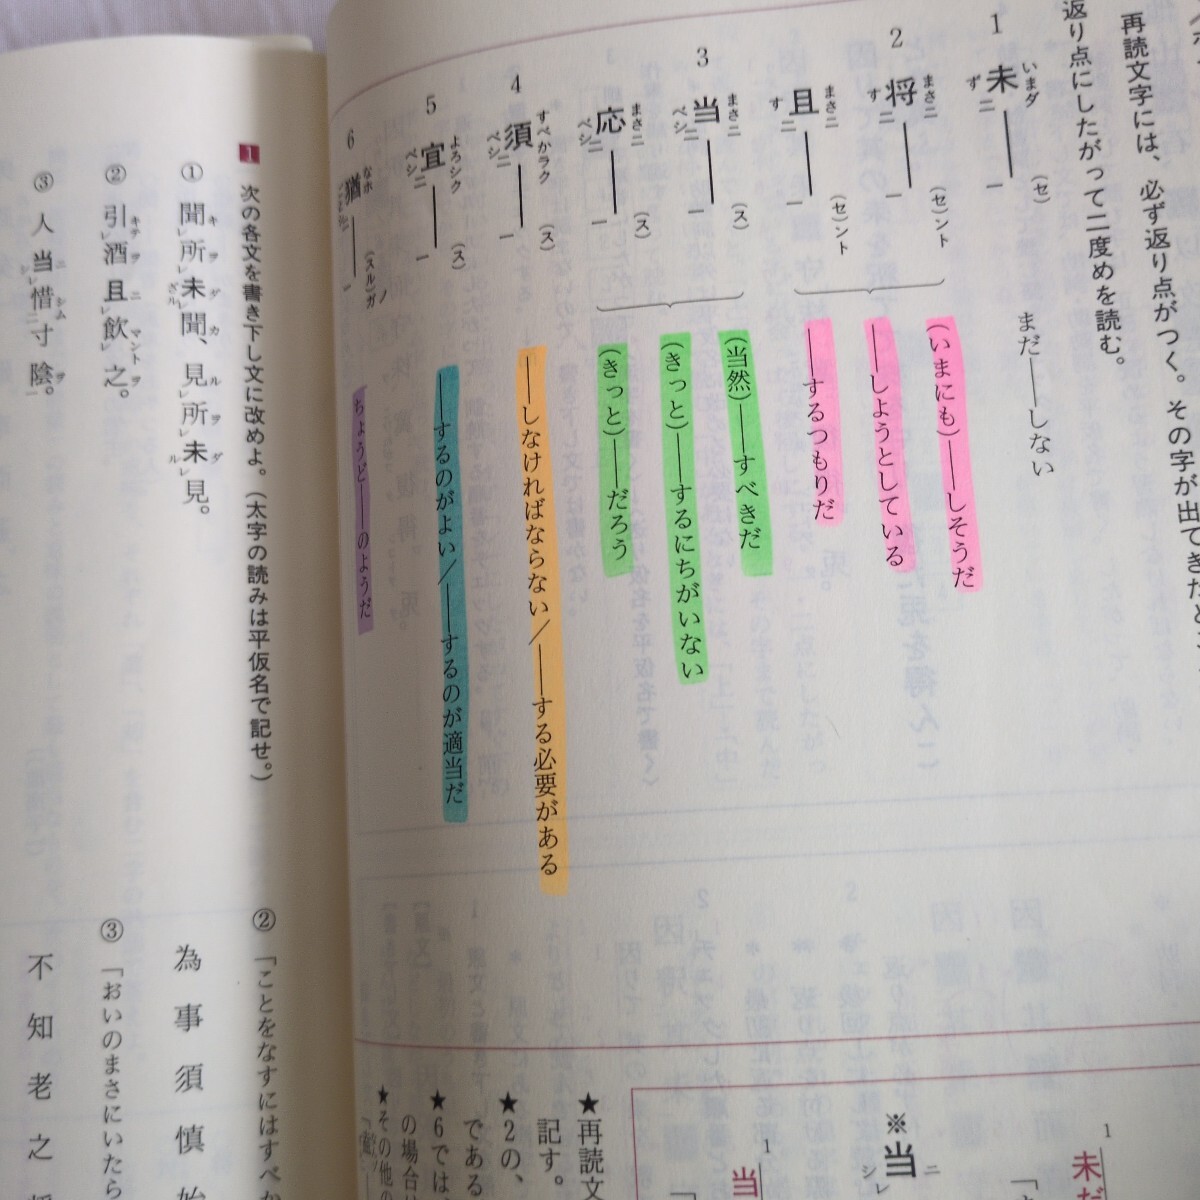 再読文字には、必ず返り点がつく。その字が出てきたと
返り点にしたがって二度めを読む。
1 未 いまダ ず 二 一 (セ) まだ――しない
2 将 まさニ す 二 一 (セ)ント (いまにも)――しそうだ
――しようとしている
且 まさニ す 二 一 (セ)ント ――するつもりだ
3 当 まさニ ベシ 二 一 (ス) (当然)――すべきだ
(きっと)――するにちがいない
応 まさニ ベシ 二 一 (ス) (きっと)――だろう
4 須 すべかラク ベシ 二 一 (ス) ――しなければならない/――する必要がある
5 宜 よろシク ベシ 二 一 (ス) ――するのがよい/――するのが適当だ
6 猶 なホ 一 (スル)ガ ノ ちょうど――のようだ
1
未だ
※当 ニ シ レ
1
当
「
★再読文
記す。
★2の、
である
★6では
の場合は
★その他の
1 次の各文を書き下し文に改めよ。(太字の読みは平仮名で記せ。)
① 聞キ レ 所ヲ レ 未ダ ざル レ 聞カ、見ル レ 所ヲ レ 未ダ ル レ 見。
② 引キテ レ 酒ヲ 且ニ レ 飲マント レ 之ヲ。
③ 人 当ニ シ レ 惜シム 二 寸 陰ヲ 一。
② 「ことをなすにはすべか
為 事 須 慎 始
③ 「おいのまさにいたら
不 知 老 之 将